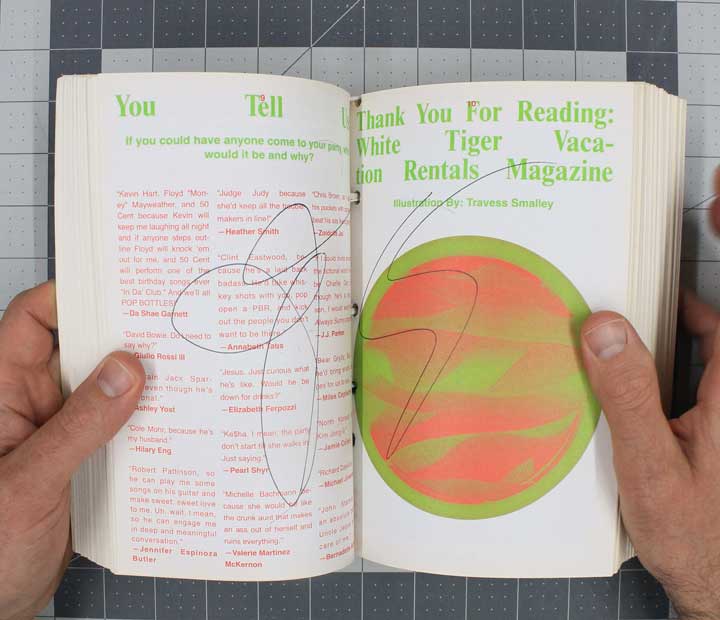 You Tell
If you could have anyone come to your party, 
would it be and why?
"Kevin Hart, Floyd "Mon-
ey" Mayweather, and 50
Cent because Kevin will
keep me laughing all night
and if anyone steps out-
line Floyd will knock 'em
out for me, and 50 Cent
will perform one of the
best birthday songs ever
"In Da' Club." And we'll all
POP BOTTLES!"
—Da Shae Garnett
"David Bowie. Do I need to
say why?"
Giulio Rossi III
Jack Spar-
even though he's
Ashley Yost
"Cole Mohr, because he's
my husband."
—Hilary Eng
"Robert Pattinson, so
he can play me some
songs on his guitar and
make sweet, sweet love
to me. Uh, wait, I mean,
so he can engage me
in deep and meaningful
conversation."
—Jennifer Espinoza
Butler
"Judge Judy because
she'd keep all the trouble
makers in line!"
—Heather Smith
"Clint Eastwood, be-
cause he's a laid back
badass. He'd take whis-
key shots with you, pop
open a PBR, and kick
out the people you don't
want to be there."
—Annabeth Tabs
"Jesus. Just curious what
he's like. Would he be
down for drinks?"
—Elizabeth Ferpozzi
"Ke$ha. I mean, the party
don't start till she walks in.
Just saying."
—Pearl Shyr
"Michelle Bachmann be-
cause she would be like
the crunk aunt that makes
an ass out of herself and
ruins everything."
—Valerie Martinez
McKernon
"Chris Brown,
his pockets
I could have
the fictional
be Charlie
though he's
son, I would
Always Sunny
—J.J. Parker
"Bear Grylls.
he'd bring
—Miles
"North Korea
Kim Jong-il
—Jamie
"Richard
—Michael
"John
an absolute
Uncle
care of
—Bernadette
Thank You For Reading:
White Tiger Vaca-
tion Rentals Magazine
Illustration By: Travess Smalley